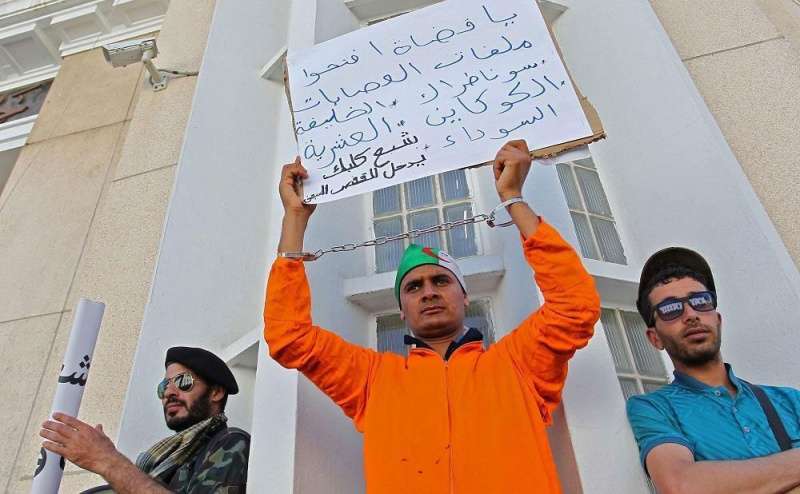 يا قضاة افتحوا
ملفات العصابات
سوناطراك. الخليفة
الكوكايين. العشرية
السوداء.
شبع كليك
يدخل للحبس